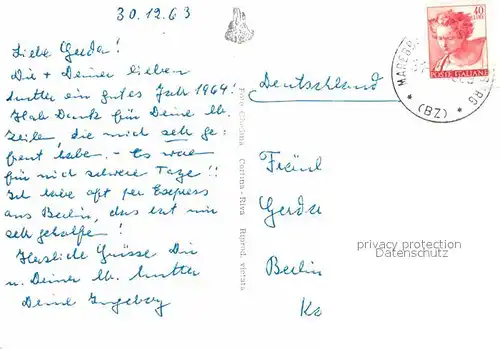 30.12.63
Liebe Gerda!
Dir + Deiner lieben
Mutter ein gutes Jahr 1964!
Hab Dank für Deine lb.
Zeilen, die mich sehr ge-
freut haben. - Es war
für mich schwere Tage!!
Ich habe oft per Express
aus Berlin, das hat mir
sehr geholfen!
Herzliche Grüsse Dir
u. Deiner lb. Mutter
Deine Ingeborg
Foto Ghedina Cortina - Riva Riprod. vietata
40
LIRE
POSTE ITALIANE
MAREBBE
(BZ)
Deutschland
Fräul
Gerda
Berlin
privacy protection
Datenschutz